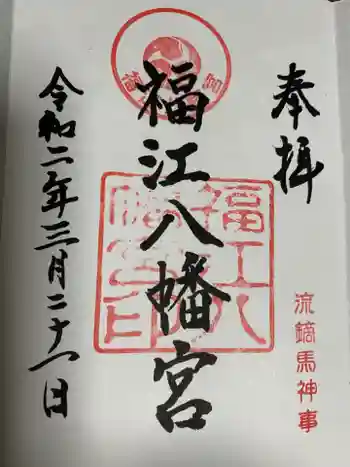 奉拝
流鏑馬神事
福江八幡宮
福江八幡宮印
令和二年三月二十一日